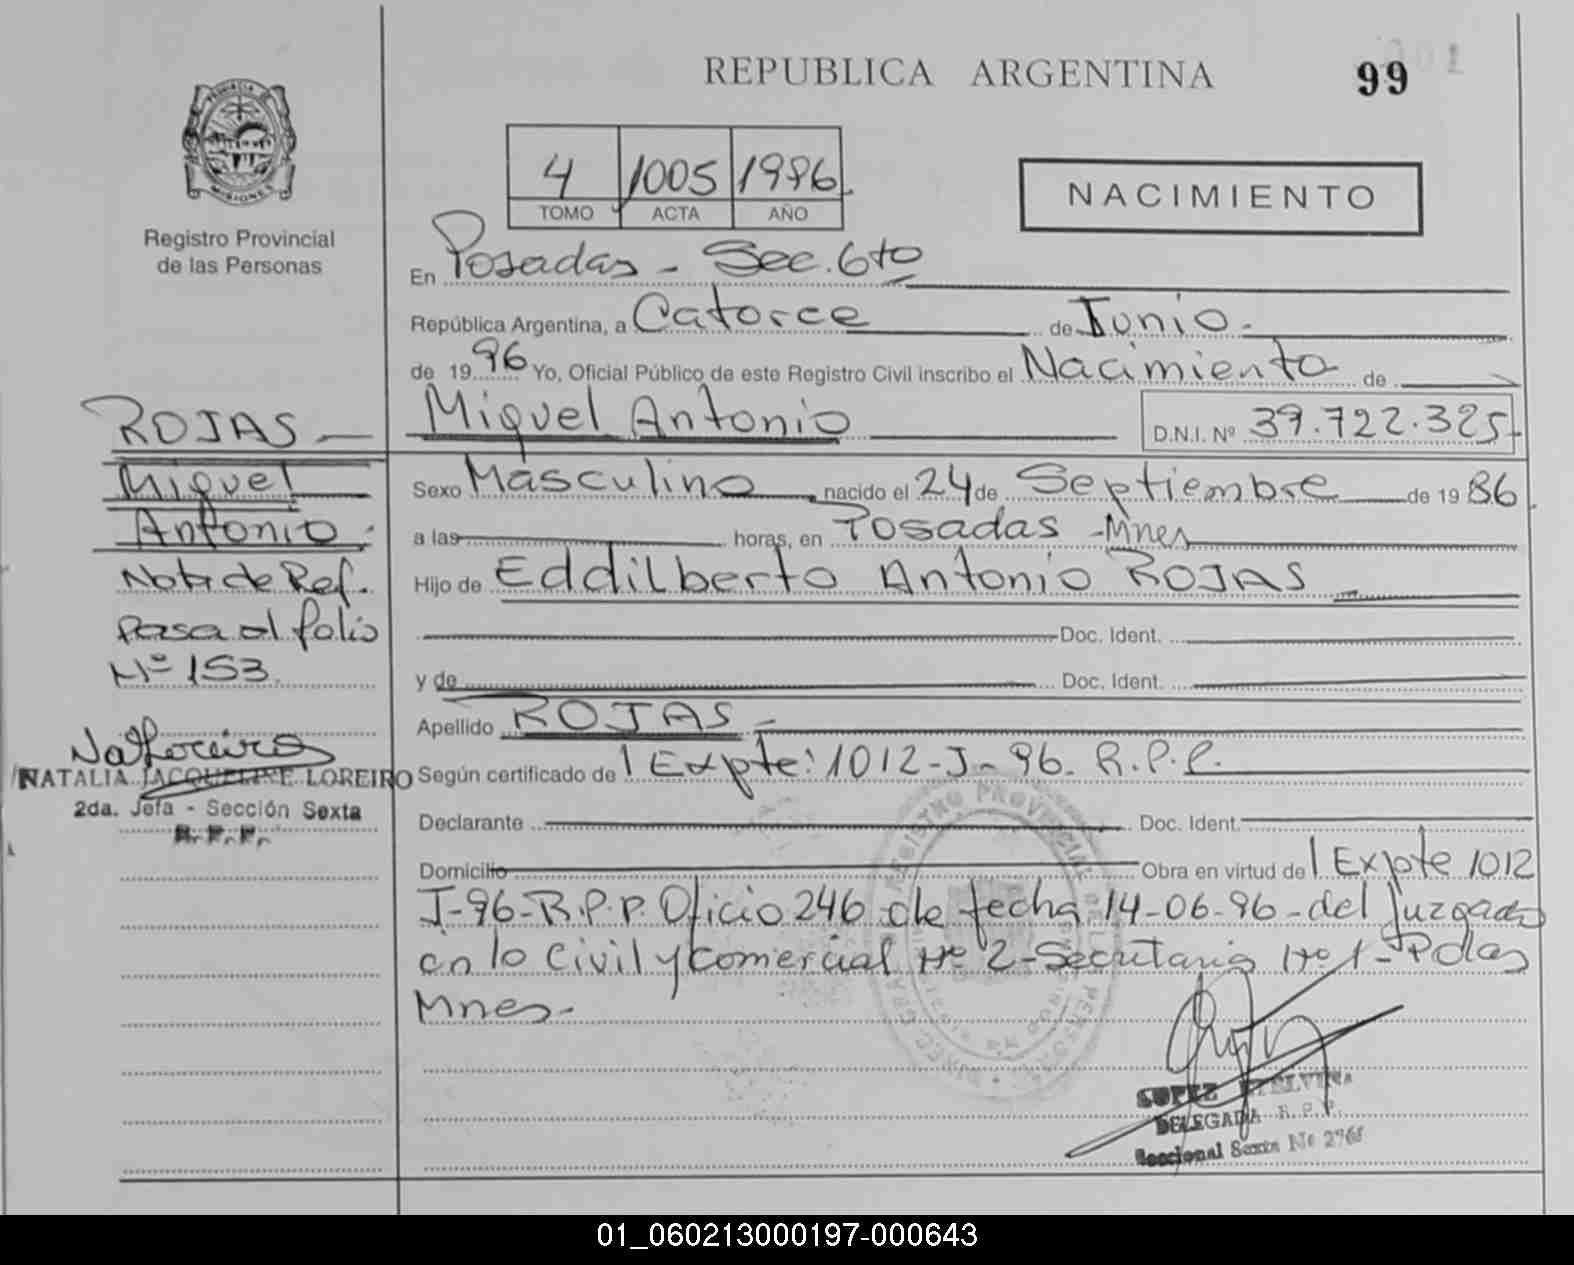 REPUBLICA ARGENTINA
99
PROVINCIA
MISIONES
Registro Provincial
de las Personas
4 1005 1996
TOMO ACTA AÑO
NACIMIENTO
En Posadas - Sec. 6to
República Argentina, a Catorce de Junio.
de 1996 Yo, Oficial Público de este Registro Civil inscribo el Nacimiento de
Miguel Antonio D.N.I. Nº 39.722.325
Sexo Masculino nacido el 24 de Septiembre de 1986
a las horas, en Posadas - Mnes
Hijo de Eddilberto Antonio ROJAS
Doc. Ident.
y de Doc. Ident.
Apellido ROJAS -
Según certificado de l Expte: 1012-J-96. R.P.P.
Declarante Doc. Ident.
Domicilio Obra en virtud de l Expte 1012
J-96-R.P.P. Oficio 246 de fecha 14-06-96-del Juzgado
en lo Civil y Comercial Nº 2-Secretaria Nº 1-Pdas
Mnes-
ROJAS
Miguel
Antonio.
Nota de Ref.
Pasa al folio
Nº 153.
NATALIA JACQUELINE LOREIRO
2da. Jefa - Sección Sexta
R.P.P.
REGISTRO PROVINCIAL DE LAS PERSONAS
LOPEZ ETELVINA
DELEGADA R.P.P.
Seccional Sexta No
01_060213000197-000643